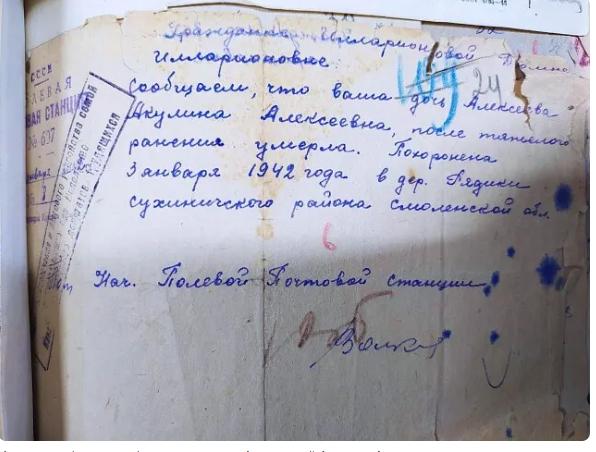 Гражданке Илларионовой Домне
Илларионовне
Сообщаем, что ваша дочь Алексеева
Акулина Алексеевна, после тяжелого
ранения умерла. Похоронена
3 января 1942 года в дер. Рядики
Сухиничского района Смоленской обл.
6
Нач. Полевой Почтовой станции
Волков
СССР
ПОЛЕВАЯ
СТАНЦИЯ
№ 607
24